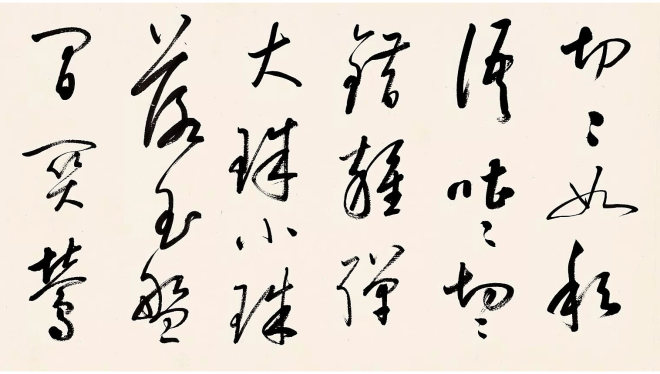 切〻如私
語嘈〻切〻
錯雜彈
大珠小珠
落玉盤
間関鶯